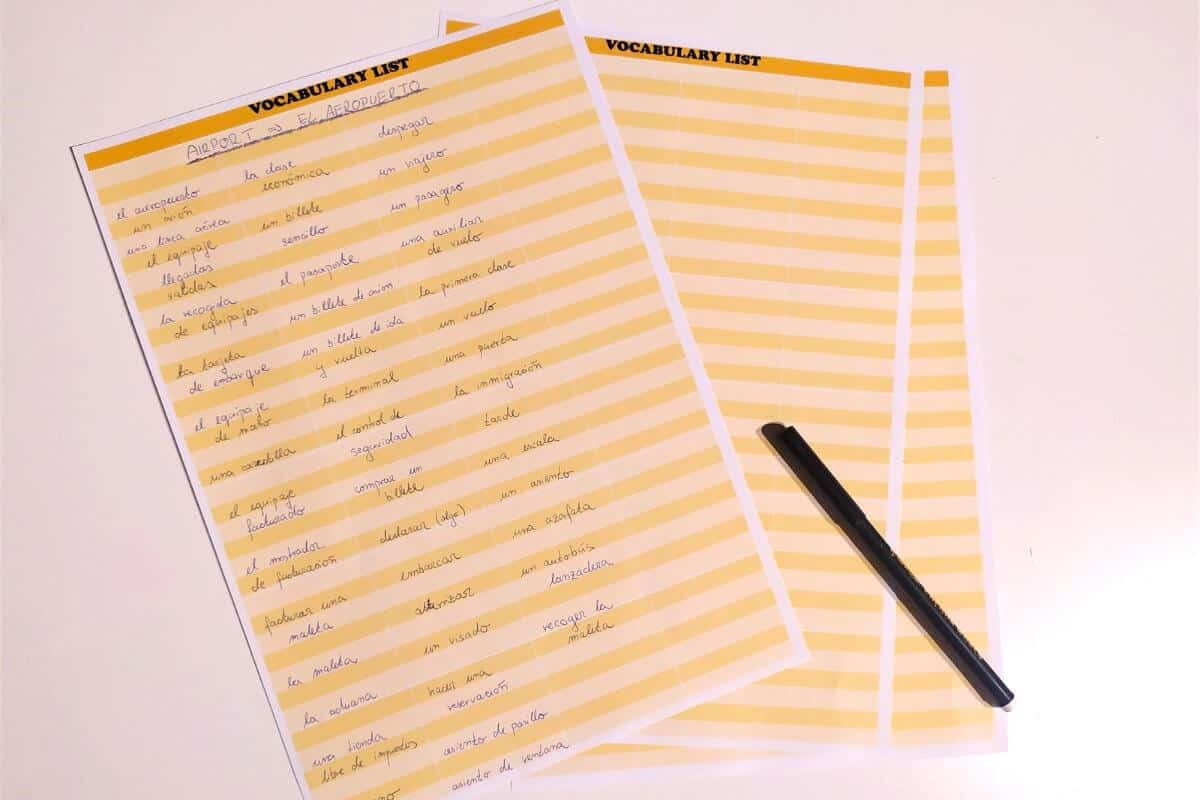 VOCABULARY LIST
AIRPORT ∞ EL AEROPUERTO
el aeropuerto
un avión
una línea aérea
el equipaje
llegadas
salidas
la recogida
de equipajes
la tarjeta
de embarque
el equipaje
de mano
una
el equipaje
facturado
el mostrador
de facturación
facturar una
maleta
la maleta
la aduana
una tienda
libre de impuestos
la clase
económica
un billete
sencillo
el pasaporte
un billete de avion
un billete de ida
y vuelta
la terminal
el control de
seguridad
comprar un
billete
declarar (algo)
embarcar
aterrizar
un visado
hacer una
reservación
asiento de pasillo
asiento de ventana
despegar
un viajero
un pasagero
una auxiliar
de vuelo
la primera clase
un vuelo
una puerta
la inmigración
tarde
una escala
un asiento
una azafata
un autobús
lanzadera
recoger la
maleta
VOCABULARY LIST